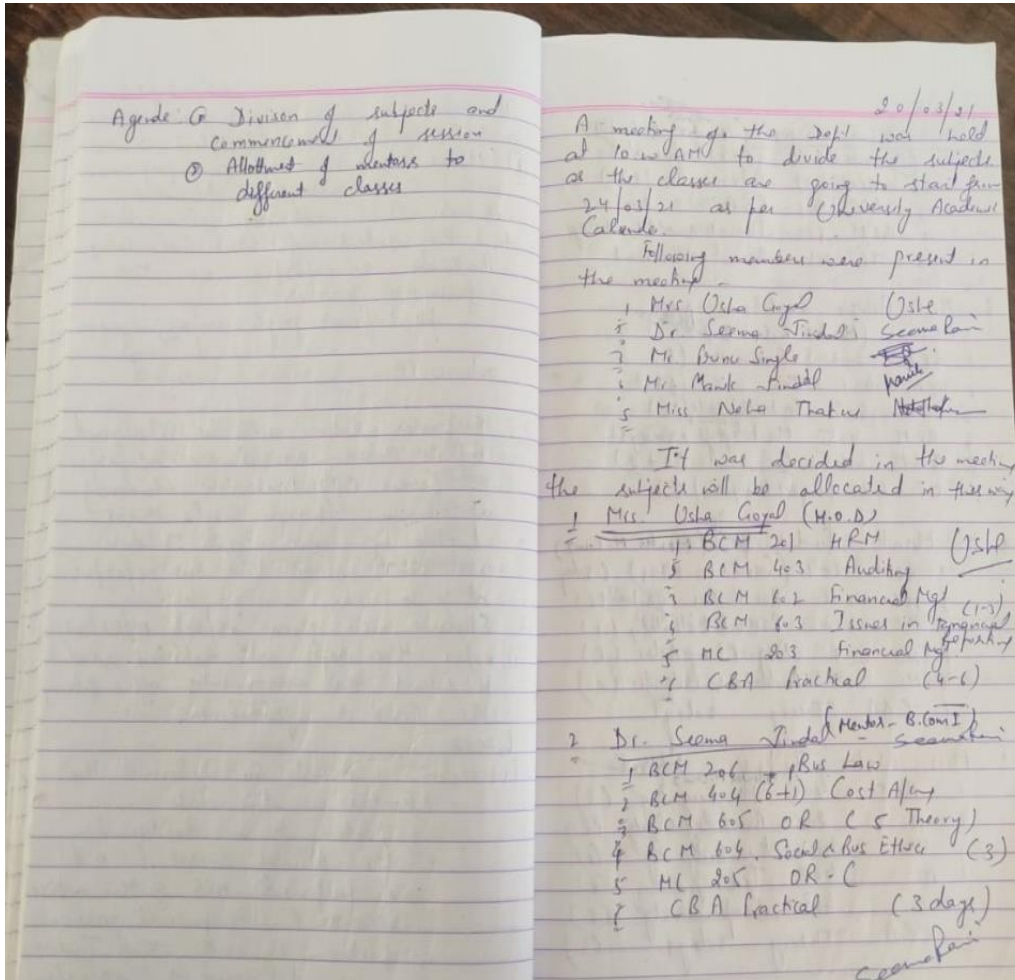 Agenda ① Divison of subjects and
commencement of session
② Allotment of mentors to
different classes
20/03/21
A meeting of the Deptt was held
at 10:00 AM to divide the subjects
as the classes are going to start from
24/03/21 as per University Academic
Calender.
Following members were present in
the meeting -
1 Mrs Usha Goyal Usha
2 Dr. Seema Jindal Seema Rani
3 Mr Singla
4 Mr Manik Jindal Manik
5 Miss Neha Thakur
It was decided in the meeting
the subjects will be allocated in this way
1 Mrs. Usha Goyal (H.O.D)
1 BCM 201 HRM Usha
2 BCM 403 Auditing
3 BCM 602 Financial Mgt (1-3)
4 BCM 603 Issues in Financial Reporting
5 MC 203 Financial Mgt
6 CBA Practical (4-6)
2 Dr. Seema Jindal (Mentor - B.Com I) Seema Rani
1 BCM 206 Bus Law
2 BCM 404 (6+1) Cost A/cing
3 BCM 605 OR (5 Theory)
4 BCM 604. Social & Bus Ethics (3)
5 MC 205 OR - C
6 CBA Practical (3 days)
Seema Rani